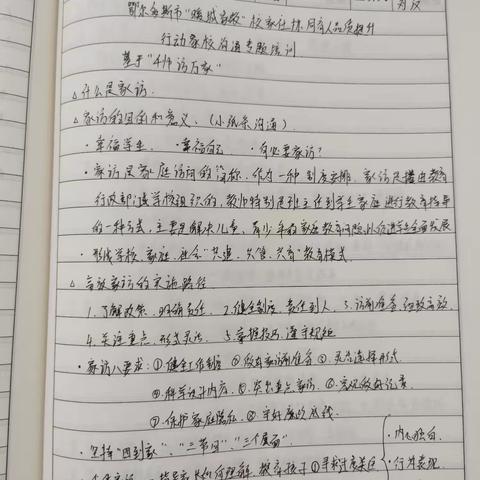 鄂尔多斯市"暖城家校"校家社协同育人品质提升
行动家校沟通专题培训
基于"千师访万家"
△什么是家访
△家访的目的和意义、(小纸条沟通)
·幸福学生 ·幸福自己 ·有必要家访?
·家访是家庭访问的简称,作为一种制度安排,家访是由教育
行政部门或学校组织的,教师特别是班主任到学生家庭进行教育指导
的一种方式,主要是解决儿童、青少年的家庭教育问题,从而促进学生全面发展
·形成学校、家庭、社会"共建、共管、共育"教育模式.
△高效家访的实施路径
1.了解政策、明确责任、2.健全制度、责任到人、3.访前准备、细致高效、
4.关注重点、形式灵活、5.掌握技巧、遵守规矩
·家访八要求:①健全工作制度 ②做好家访前准备 ③灵活选择形式
④科学设计内容、⑤突出重点家访、⑥高度做好记录
⑦保护家庭隐私、⑧守好廉政底线.
·坚持"四到家"、"三节日"、"三个层面"
·内心独白.
·行为表现.